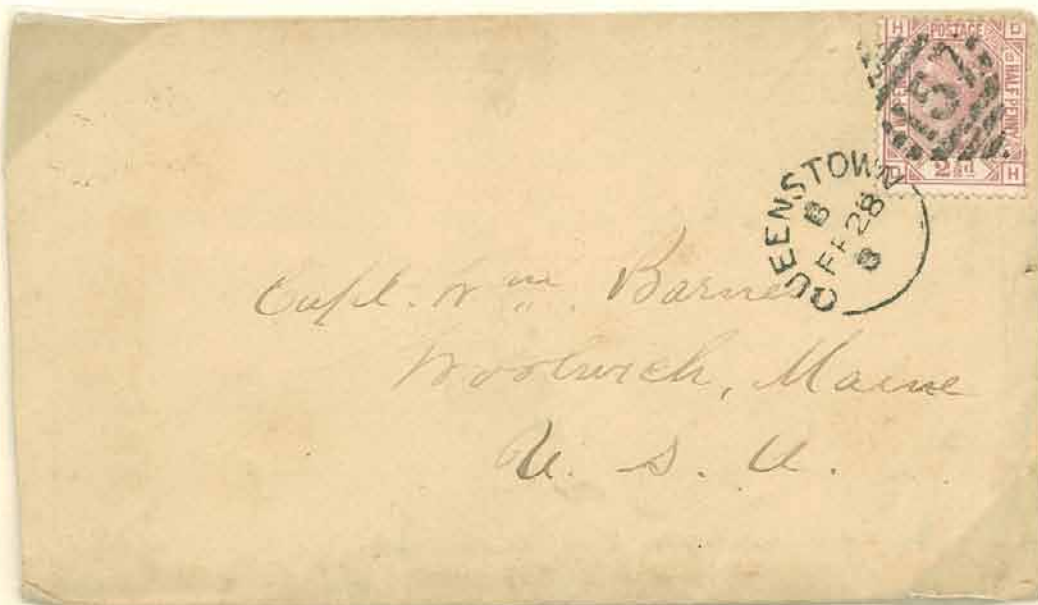 H POSTAGE D
HALF PENNY
157
D 2½d H
QUEENSTOWN
B
FE 28
8
Capt. Wm. Barnes
Woolwich, Maine
U. S. A.